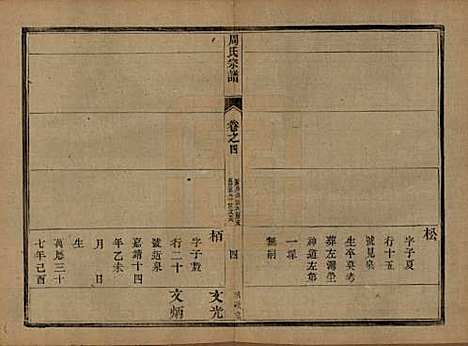 松
字子夏
行十五
號見泉
生卒莫考
葬左灣塋
神道左第
一塚
無嗣
周氏宗譜
卷之四
四
栢
字子
行二十
號道泉
嘉靖十四
年乙未
月 日
生
萬曆三十
七年己酉
文光
文炳